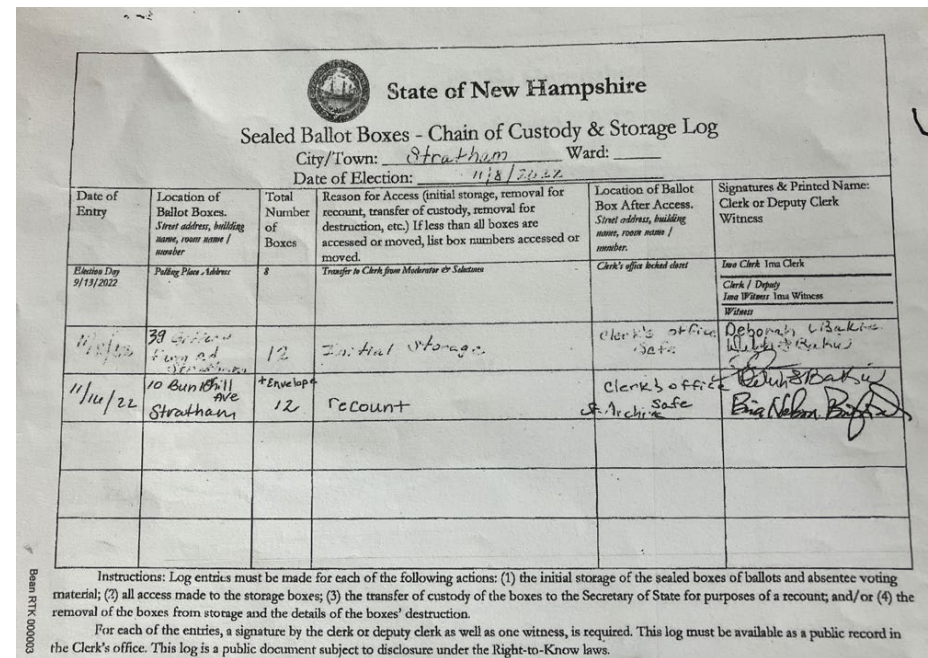 State of New Hampshire
Sealed Ballot Boxes - Chain of Custody & Storage Log
City/Town: Stratham Ward:
Date of Election: 11/8/2022
Date of
Entry
Location of
Ballot Boxes.
Street address, building
name, room name /
number
Total
Number
of
Boxes
Reason for Access (initial storage, removal for
recount, transfer of custody, removal for
destruction, etc.) If less than all boxes are
accessed or moved, list box numbers accessed or
moved.
Location of Ballot
Box After Access.
Street address, building
name, room name /
number.
Signatures & Printed Name:
Clerk or Deputy Clerk
Witness
Election Day
9/13/2022
Polling Place Address
8
Transfer to Clerk from Moderator & Selectmen
Clerk's office locked closet
Ima Clerk Ima Clerk
Clerk / Deputy
Ima Witness Ima Witness
Witness
39
12
Initial Storage
Clerk's office
Safe
Deborah Bakie
11/14/22
10 Bunkhill
Ave
Stratham
+ Envelope
12
recount
Clerk's office
Safe
Instructions: Log entries must be made for each of the following actions: (1) the initial storage of the sealed boxes of ballots and absentee voting
material; (2) all access made to the storage boxes; (3) the transfer of custody of the boxes to the Secretary of State for purposes of a recount; and/or (4) the
removal of the boxes from storage and the details of the boxes' destruction.
For each of the entries, a signature by the clerk or deputy clerk as well as one witness, is required. This log must be available as a public record in
the Clerk's office. This log is a public document subject to disclosure under the Right-to-Know laws.
Bean RTK 000003